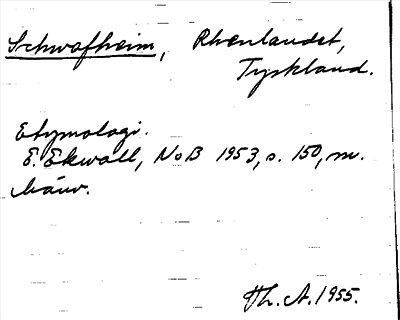 Schwafheim, Rhenlandet,
Tyskland.
Etymologi.
E. Ekwall, NoB 1953, s. 150, m.
hänv.
Th. A. 1955.